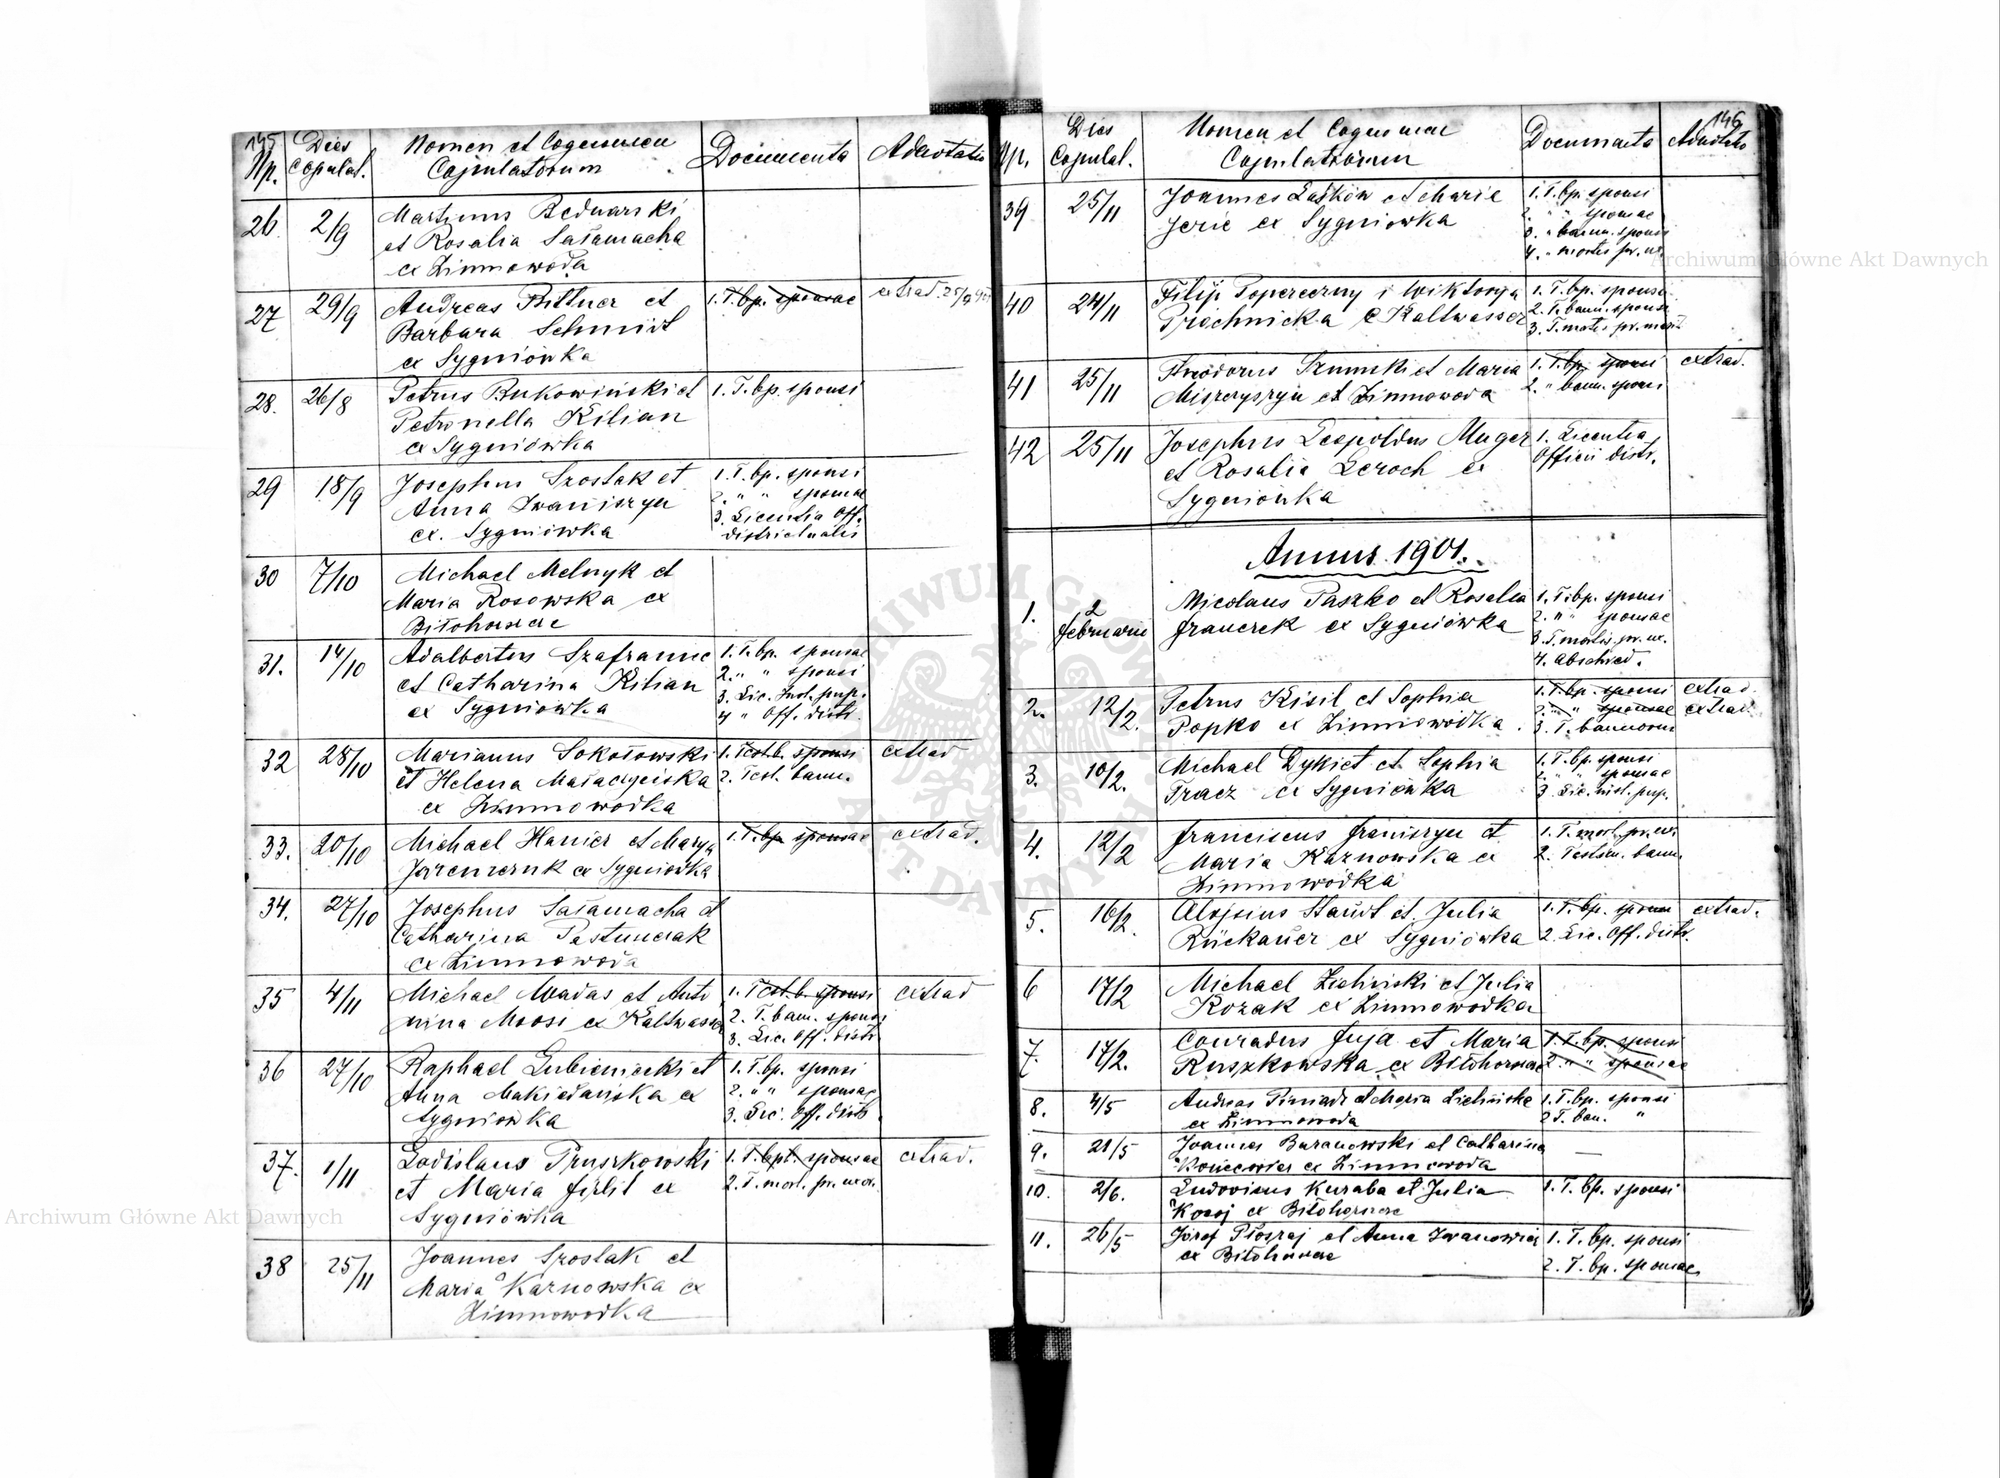 145
Np.
Dies
Copulat.
Nomen et Cognomen
Copulatorum
Documenta
Adnotatio
26
2/9
Martinus Bednarski
et Rosalia Sałamacha
ex Zimnowoda
27
29/9
Andreas Pittner et
Barbara Schmidt
ex Sygniówka
1. T. bp. sponsae
extrad. 25/9
28.
26/8
Petrus Bukowiński et
Petronella Kilian
ex Sygniówka
1. T. bp. sponsi
29
18/9
Josephus Szostak et
Anna Iwaniszyn
ex. Sygniówka
1. T. bp. sponsi
2. " " sponsae
3. Licentia Off.
districtualis
30
7/10
Michael Melnyk et
Maria Rosowska ex
Biłohorszcze
31.
14/10
Adalbertus Szafraniec
et Catharina Kilian
ex Sygniówka
1. T. bp. sponsae
2. " " sponsi
3. Lic. Inst. pup.
4 " Off. distr.
32
28/10
Marianus Sokołowski
et Helena Maładyńska
ex Zimnowodka
1. Test. b. sponsi
2. Test. bann.
extrad
33.
20/10
Michael Hanier et Marya
Jaremczuk ex Sygniówka
1. T. bp sponsae
extrad.
34.
27/10
Josephus Sałamacha et
Catharina Pastuszak
ex Zimnowoda
35
4/11
Michael Madas et Anto
nina Moosi ex Kaltwasser
1. Test. b. sponsi
2. T. bann. sponsi
3. Lic. Off. distr.
extrad
36
27/10
Raphael Lubieniecki et
Anna Makiedańska ex
Sygniowka
1. T. bp. sponsi
2. " " sponsae
3. Lic. Off. distr.
37.
1/11
Ladislaus Pruszkowski
et Maria Jielit ex
Sygniówka
1. T. bpt. sponsae
2. T. mort. pr. uxor.
extrad.
38
25/11
Joannes Szostak et
Maria Karnowska ex
Zimnowodka
146
Np.
Dies
Copulat.
Nomen et Cognomen
Copulatorum
Documenta
Adnotatio
39
25/11
Joannes Laśków et Marie
Jerie ex Sygniowka
1. T. bp. sponsi
2. " " sponsae
3. " bann. sponsi
4. " mortis pr. ux.
40
24/11
Filip Popereczny i Wiktorya
Prochnicka e Kaltwasser
1. T. bp. sponsae
2. T. bann. sponsi
3. T. mortis pr. mariti
41
25/11
Theodorus Szumski et Maria
Mizreryszyn et Zimnowoda
1. T. bp. sponsi
2. " bann. sponsi
extrad.
42
25/11
Josephus Leopoldus Muger
et Rosalia Leroch ex
Sygniowka
1. Licentia
Officii distr.
Annus 1901.
1.
2
februarii
Nicolaus Paszko et Rosalia
Franczek ex Sygniówka
1. T. bp. sponsi
2. " " sponsae
3. T. mortis pr. ux.
4. Abschied.
2.
12/2.
Petrus Kisil et Sophia
Popko ex Zimniowodka.
1. T. bp. sponsi
2. " " sponsae
3. T. bannorum
extrad.
extrad.
3.
10/2.
Michael Dykiet et Sophia
Tracz ex Sygniówka
1. T. bp. sponsi
2. " " sponsae
3 Lic. inst. pup.
4.
12/2
Franciscus Franiszyn et
Maria Karnowska ex
Zimnowodka
1. T. mort. pr. ux.
2. Testim. bann.
5.
16/2.
Alojsius Staudt et Julia
Rückauer ex Sygniówka
1. T. bp. sponsi
2. Lic. Off. distr.
extrad.
6
17/2
Michael Zieliński et Julia
Kozak ex Zimnowodka
7.
17/2.
Conradus Juja et Maria
Ruszkowska ex Biłohorszcze
1. T. bp. sponsi
2. " " sponsae
8.
4/5
Andreas et Maria Zielińska
ex Zimnowoda
1. T. bp. sponsi
2 T. ban. "
9.
21/5
Joannes Baranowski et Catharina
Koniecwicz ex Zimnowoda
—
10.
2/6.
Ludovicus Kuraba et Julia
Kozoj ex Biłohorszcze
1. T. bp. sponsi
11.
26/5
Józef Płoszaj et Anna Iwanowicz
ex Biłohorszcze
1. T. bp. sponsi
2. T. bp. sponsae
Archiwum Główne Akt Dawnych
Archiwum Główne Akt Dawnych
ARCHIWUM GŁÓWNE AKT DAWNYCH